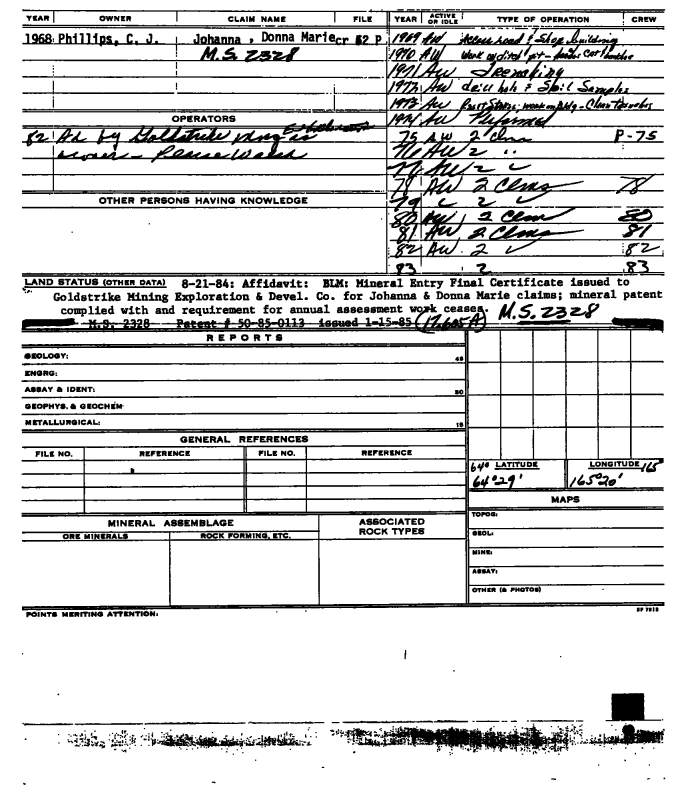 YEAR OWNER CLAIM NAME FILE
1968 Phillips, C. J. Johanna , Donna Marie cr 52 P
M.S. 2328
OPERATORS
82 Ad by Goldstrike
owner -
OTHER PERSONS HAVING KNOWLEDGE
YEAR ACTIVE OR IDLE TYPE OF OPERATION CREW
1969 AW Access road & Shop building
1970 AW Work on ditch
1971 AW Icemaking
1972 AW drill hole & Soil Samples
1973 AW
1974 AW Performed
75 AW 2 clms P-75
76 AW 2 "
77 AW 2 ✓
78 AW 2 Clms 78
79 ✓ 2 ✓
80 AW, 2 Clm 80
81 AW, 2 Clms 81
82 AW. 2 ✓ 82
83 2 83
LAND STATUS (OTHER DATA) 8-21-84: Affidavit: BLM: Mineral Entry Final Certificate issued to
Goldstrike Mining Exploration & Devel. Co. for Johanna & Donna Marie claims; mineral patent
complied with and requirement for annual assessment work ceases. M.S. 2328
M.S. 2328 Patent # 50-85-0113 issued 1-15-85 (17.605 A)
REPORTS
GEOLOGY: 45
ENGRG:
ASSAY & IDENT: 30
GEOPHYS. & GEOCHEM
METALLURGICAL: 15
GENERAL REFERENCES
FILE NO. REFERENCE FILE NO. REFERENCE
64° LATITUDE LONGITUDE 165
64°29' 165°20'
MAPS
TOPOG:
GEOL:
MINE:
ASSAY:
OTHER (& PHOTOS)
MINERAL ASSEMBLAGE
ORE MINERALS ROCK FORMING, ETC.
ASSOCIATED
ROCK TYPES
POINTS MERITING ATTENTION: